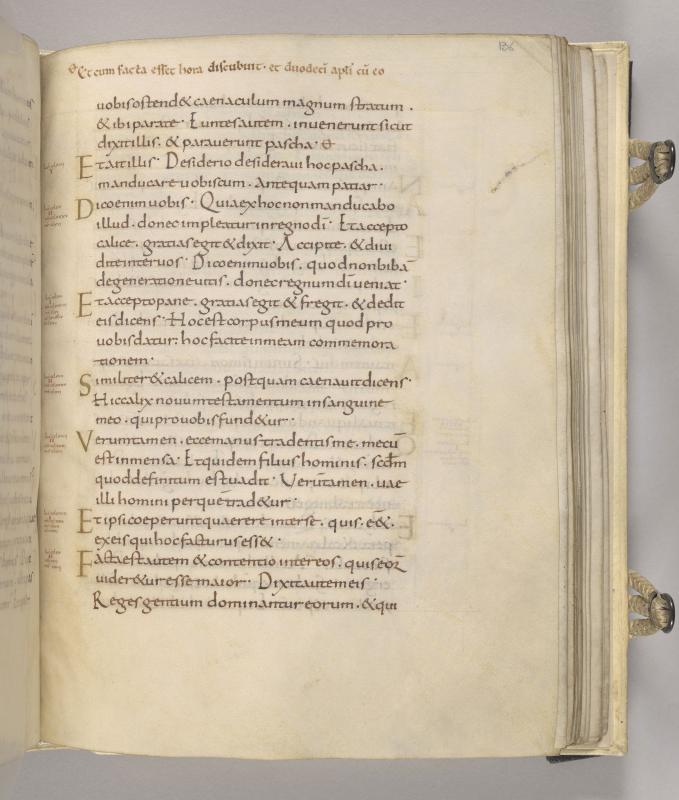 Et cum facta esset hora discubuit · et duodecī apłi cū eo
136
uobis ostend& caenaculum magnum stratum ·
& ibi parate · Euntes autem · inuenerunt sicut
dixit illis · & parauerunt pascha ·
Et ait illis · Desiderio desideraui hoc pascha ·
manducare uobiscum · Antequam patiar ·
Dico enim uobis · Quia ex hoc non manducabo
illud · donec impleatur in regno dī · Et accepto
calice · gratias egit & dixit · Accipite · & diui
dite inter uos · Dico enim uobis · quod non bibā
de generatione uitis · donec regnum dī ueniat ·
Et accepto pane · gratias egit & fregit · & dedit
eis dicens · Hoc est corpus meum quod pro
uobis datur : hoc facite in meam commemora
tionem ·
Similiter & calicem · postquam caenauit dicens ·
Hic calix nouum testamentum in sanguine
meo · qui pro uobis fund&ur ·
Verumtamen · ecce manus tradentis me · mecū
est in mensa · Et quidem filius hominis · scdm
quod definitum est uadit · Verūtamen · uae
illi homini per quē trad&ur ·
Et ipsi coeperunt quaerere inter se · quis · e& ·
ex eis qui hoc facturus ess& ·
Facta est autem & contentio inter eos · quis eoꝝ
uider&ur esse maior · Dixit autem eis ·
Reges gentium dominantur eorum · & qui